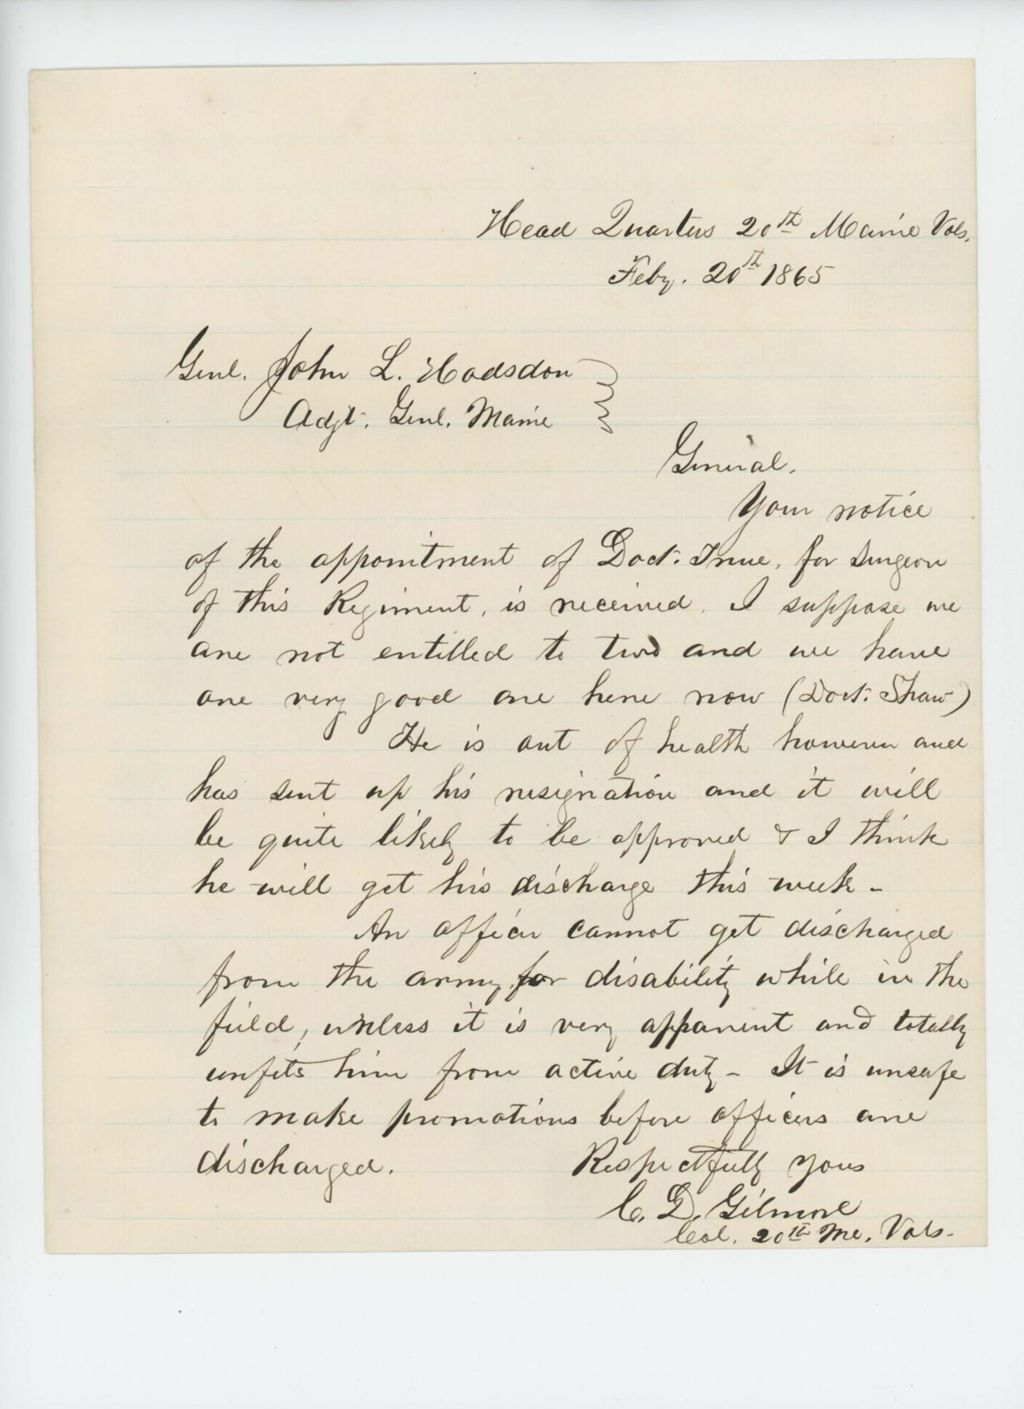 Head Quarters 20th Maine Vols.
Feby. 20th 1865
Genl. John L. Hodsdon
Adjt. Genl. Maine
General.
Your notice
of the appointment of Doct. True, for surgeon
of this Regiment, is received. I suppose we
are not entitled to two and we have
one very good one here now (Doct. Shaw)
He is out of health however and
has sent up his resignation and it will
be quite likely to be approved & I think
he will get his discharge this week -
An officer cannot get discharged
from the army for disability while in the
field, unless it is very apparent and totally
unfits him from active duty - It is unsafe
to make promotions before officers are
discharged. Respectfully yours
C. D. Gilmore
Col. 20th Me. Vols.